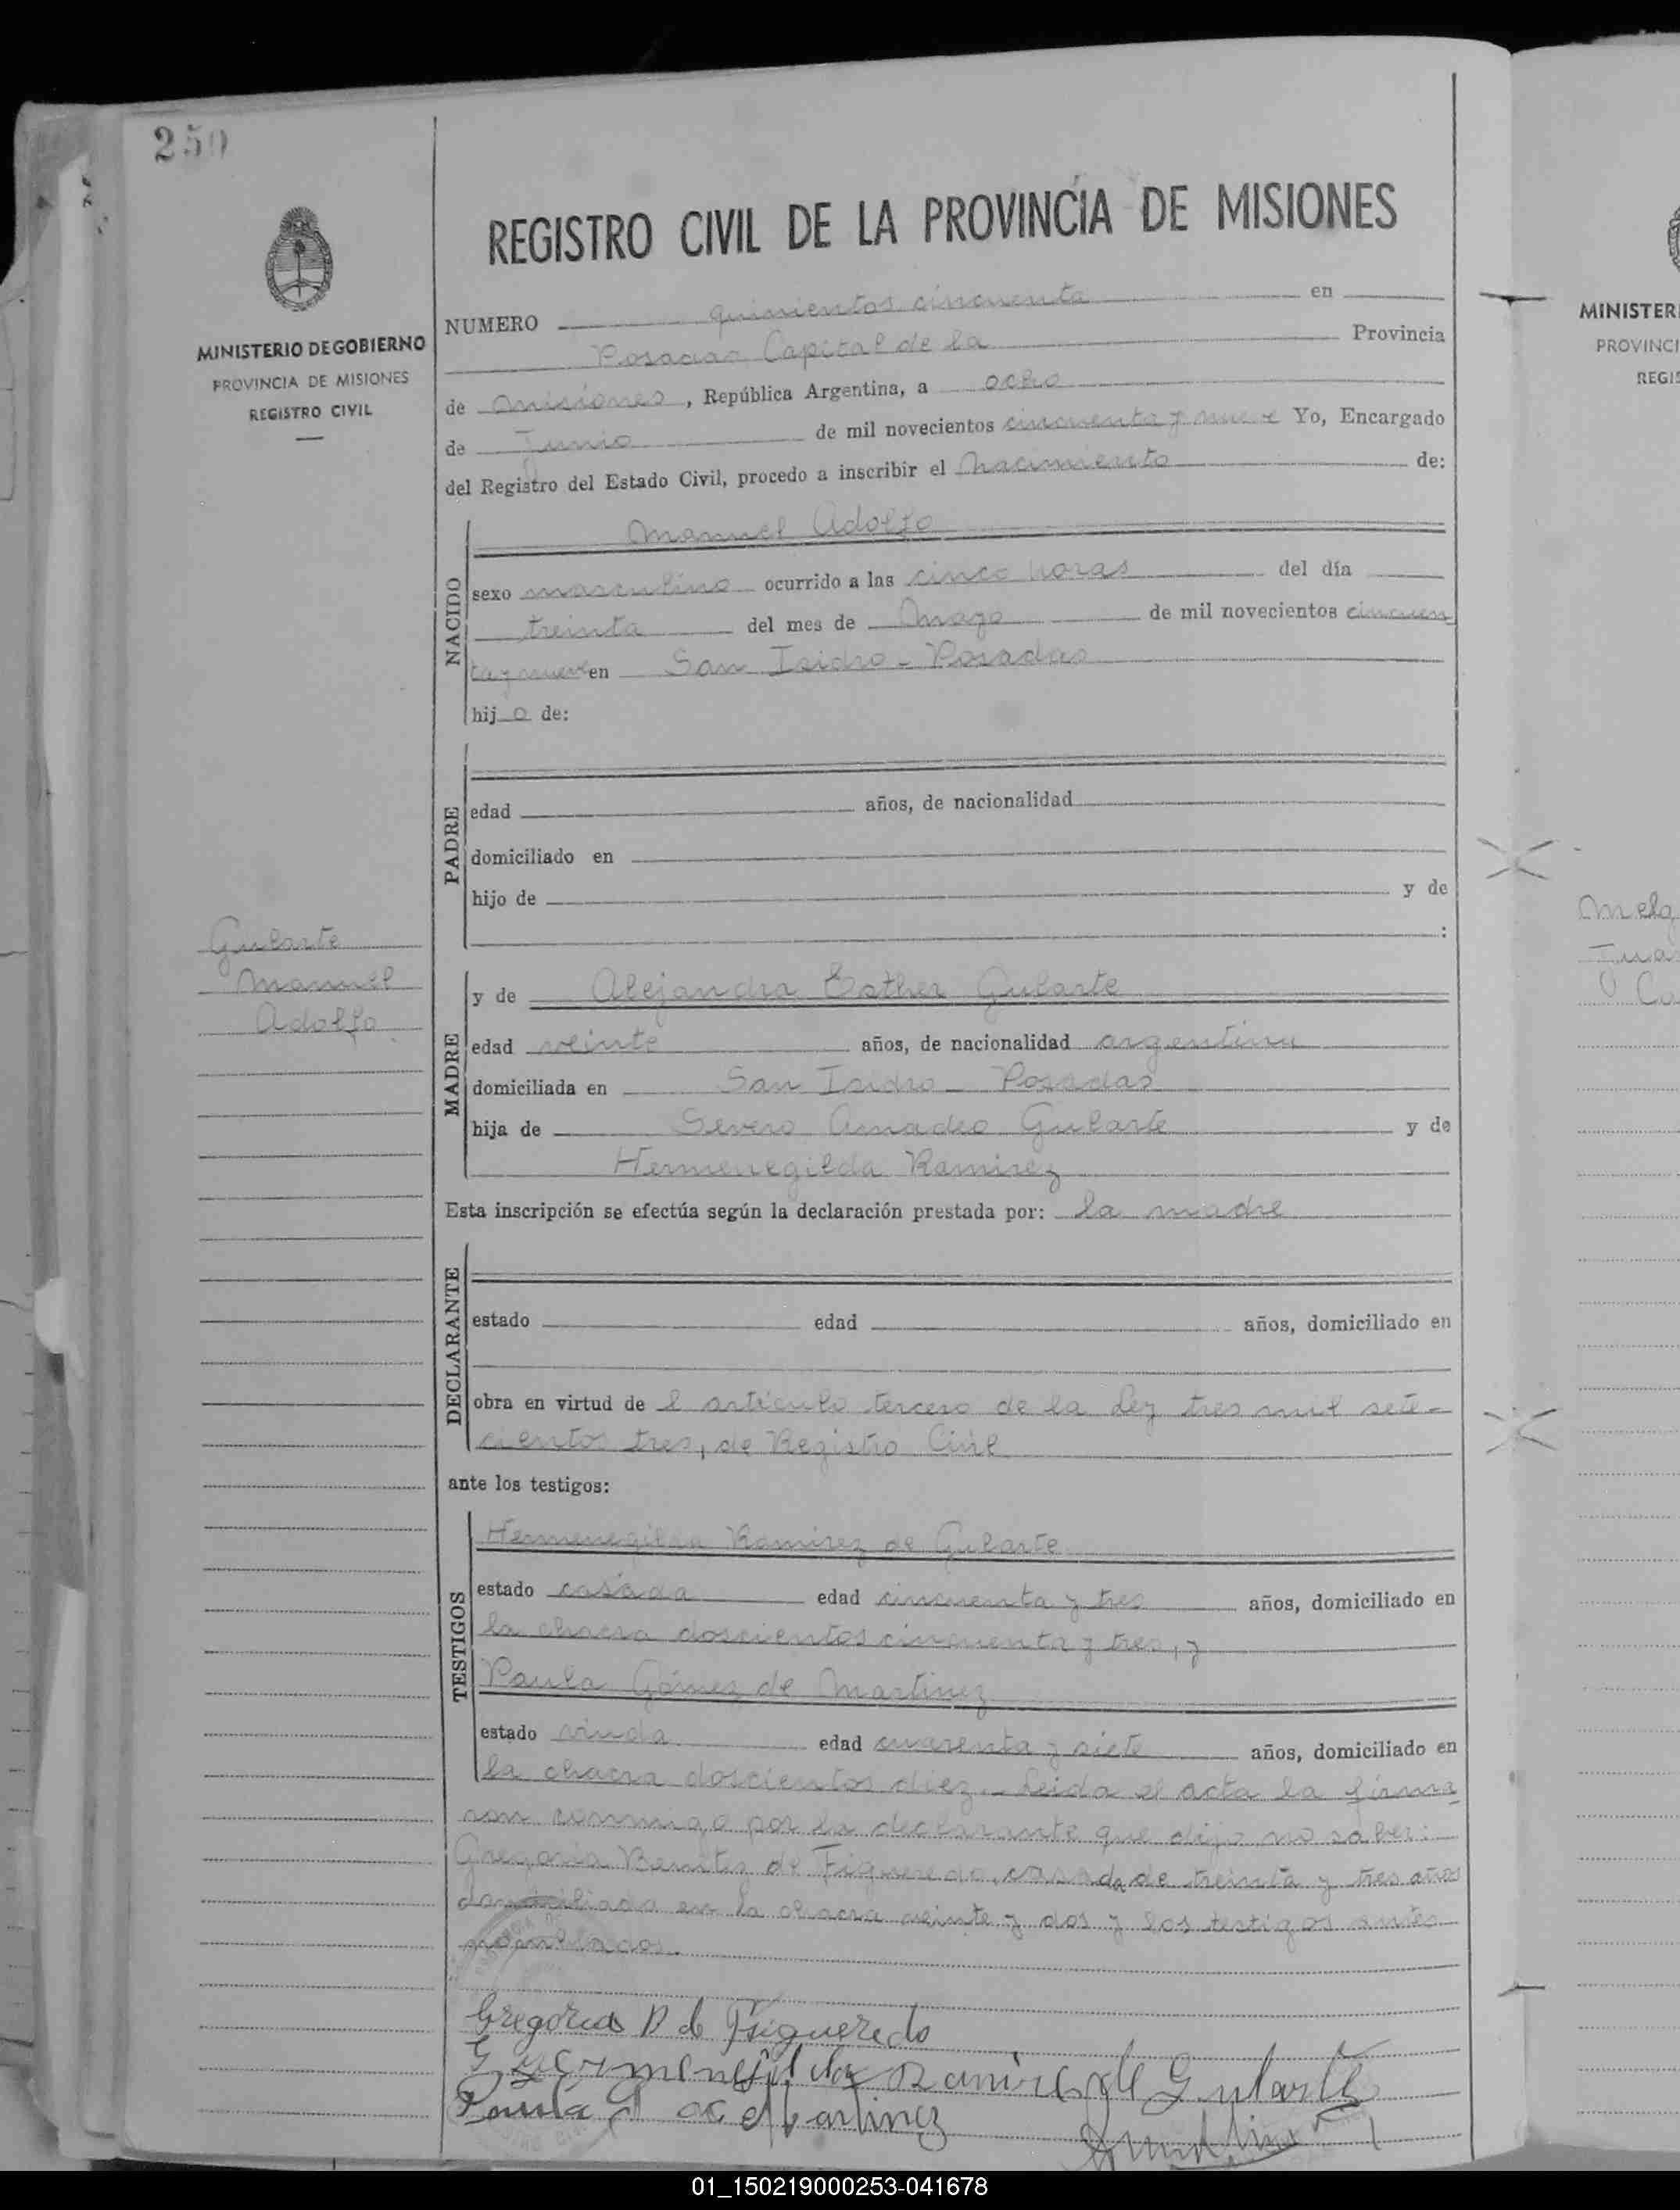 250
MINISTERIO DE GOBIERNO
PROVINCIA DE MISIONES
REGISTRO CIVIL
Gularte
Manuel
Adolfo
REGISTRO CIVIL DE LA PROVINCIA DE MISIONES
NUMERO quinientos cincuenta en
Posadas Capital de la Provincia
de Misiones, República Argentina, a ocho
de Junio de mil novecientos cincuenta y nueve Yo, Encargado
del Registro del Estado Civil, procedo a inscribir el nacimiento de:
NACIDO
Manuel Adolfo
sexo masculino ocurrido a las cinco horas del día
treinta del mes de Mayo de mil novecientos cincuen
ta y nueve en San Isidro - Posadas
hijo de:
PADRE
edad años, de nacionalidad
domiciliado en
hijo de y de
:
MADRE
y de Alejandra Esther Gularte
edad veinte años, de nacionalidad argentina
domiciliada en San Isidro - Posadas
hija de Severo Amadeo Gularte y de
Hermenegilda Ramirez
Esta inscripción se efectúa según la declaración prestada por: la madre
DECLARANTE
estado edad años, domiciliado en
obra en virtud de l artículo tercero de la Ley tres mil sete-
cientos tres, de Registro Civil
ante los testigos:
TESTIGOS
Hermenegilda Ramirez de Gularte
estado casada edad cincuenta y tres años, domiciliado en
la chacra doscientos cincuenta y tres, y
Paula Gómez de Martinez
estado viuda edad cuarenta y siete años, domiciliado en
la chacra doscientos diez. - Leida el acta la firma
ron conmigo por la declarante que dijo no saber:
Gregoria Benitez de Figueredo, casada de treinta y tres años
domiciliada en la chacra veinte y dos y los testigos antes
nombrados.
Gregoria B de Figueredo
Hermenegilda Ramirez de Gularte
Paula G de Martinez
MINISTER
PROVINCI
REGIS
Melg
Jua
Ca
01_150219000253-041678